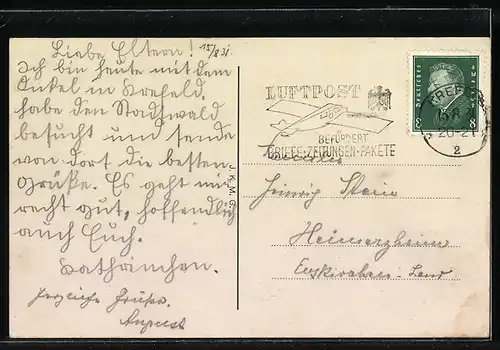 Liebe Eltern! 15/8 31.
Ich bin heute mit dem
Onkel in Krefeld,
habe den Stadtwald
besucht und sende
von dort die besten
Grüße. Es geht mir
recht gut, hoffendlich
auch Euch.
Kathrinchen.
Herzliche Grüße
August
J. K. M. G.
LUFTPOST
BEFÖRDERT
BRIEFE-ZEITUNGEN-PAKETE
DEUTSCHES REICH
8 8
KREFELD
15.8
20-21
2
Heinrich Stein
Heimerzheim
Euskirchen-Land